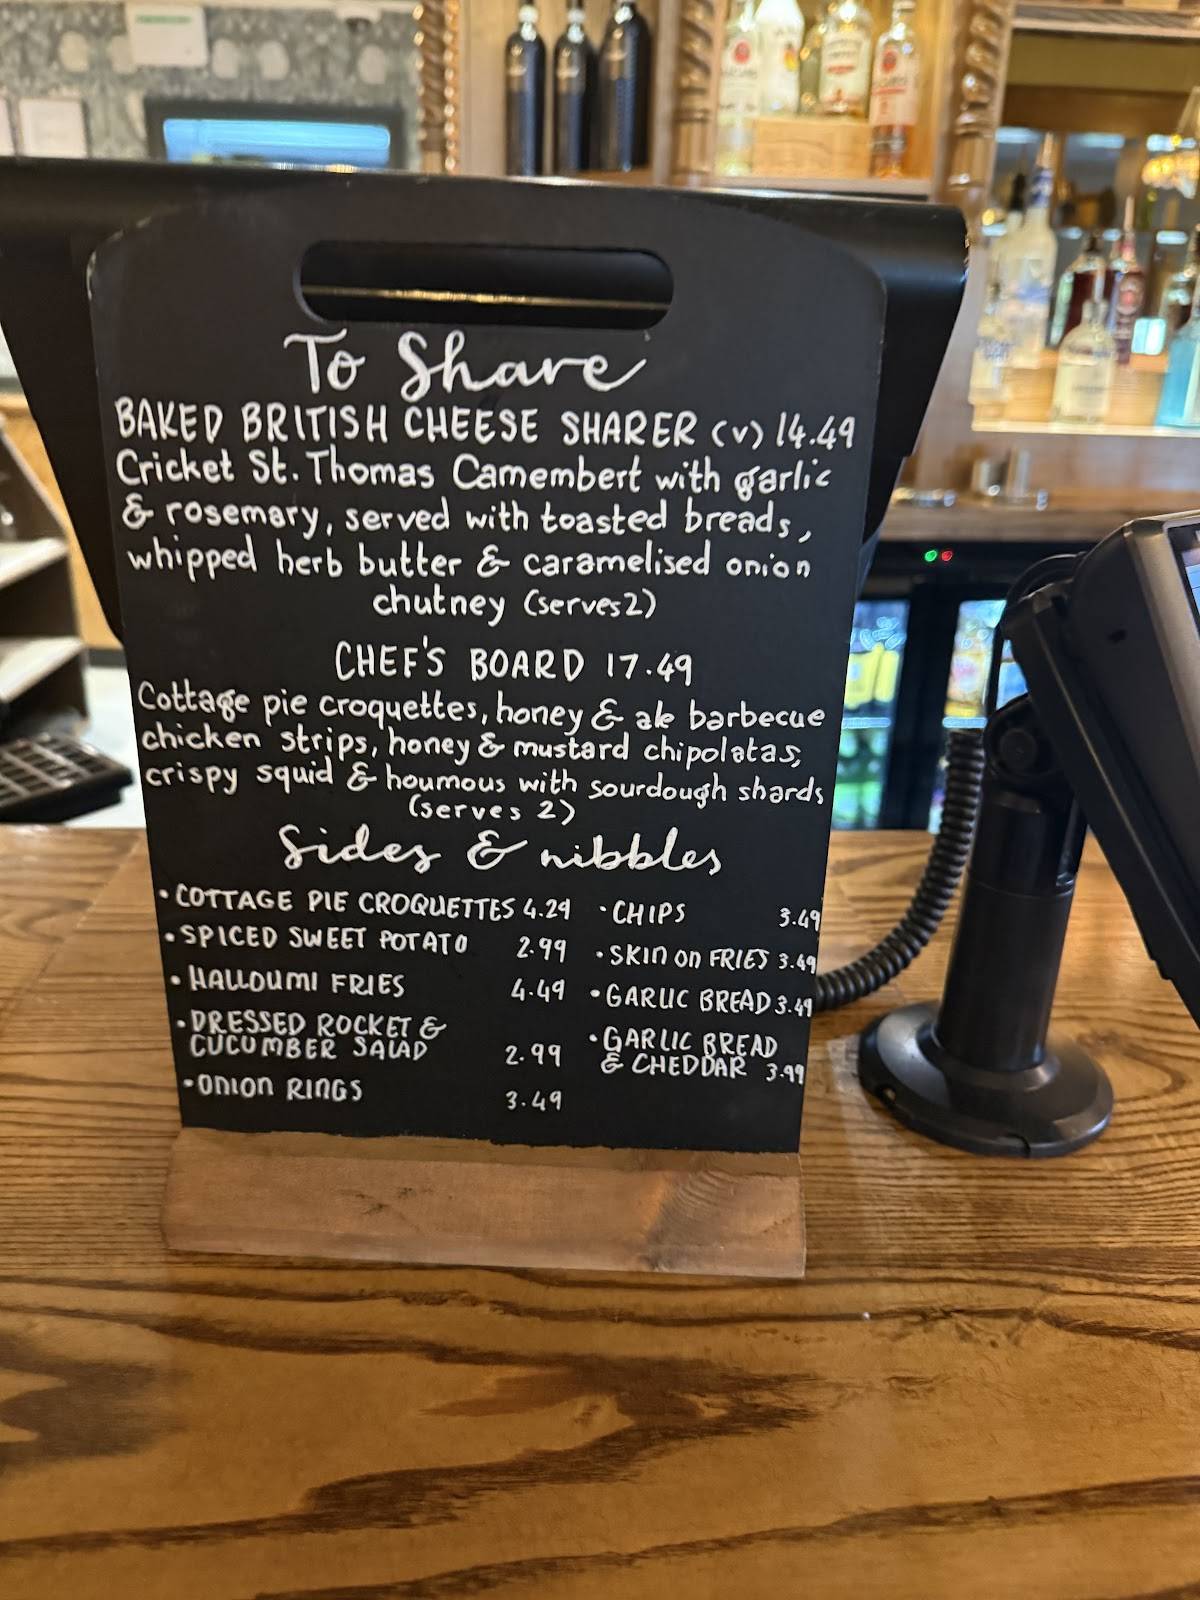 To Share
BAKED BRITISH CHEESE SHARER (v) 14.49
Cricket St. Thomas Camembert with garlic
& rosemary, served with toasted breads,
whipped herb butter & caramelised onion
chutney (serves 2)
CHEF'S BOARD 17.49
Cottage pie croquettes, honey & ale barbecue
chicken strips, honey & mustard chipolatas,
crispy squid & houmous with sourdough shards
(serves 2)
Sides & nibbles
• COTTAGE PIE CROQUETTES 4.29
• SPICED SWEET POTATO 2.99
• HALLOUMI FRIES 4.49
• DRESSED ROCKET &
CUCUMBER SALAD 2.99
• ONION RINGS 3.49
• CHIPS 3.49
• SKIN ON FRIES 3.49
• GARLIC BREAD 3.49
• GARLIC BREAD
& CHEDDAR 3.99